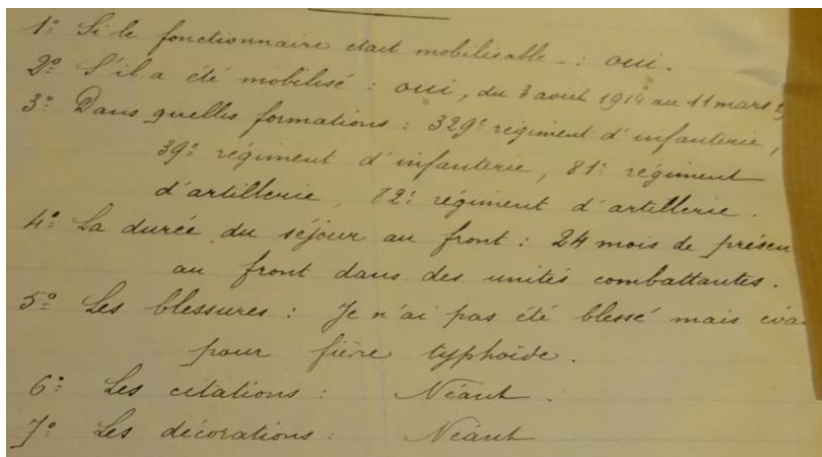 1º Si le fonctionnaire était mobilisable : oui.
2º S'il a été mobilisé : oui, du 3 août 1914 au 11 mars
3º Dans quelles formations : 329e régiment d'infanterie,
39e régiment d'infanterie, 81e régiment
d'artillerie, 82e régiment d'artillerie.
4º La durée du séjour au front : 24 mois de présen
au front dans des unités combattantes.
5º Les blessures : Je n'ai pas été blessé mais évac
pour fièvre typhoïde.
6º Les citations : Néant.
7º Les décorations : Néant